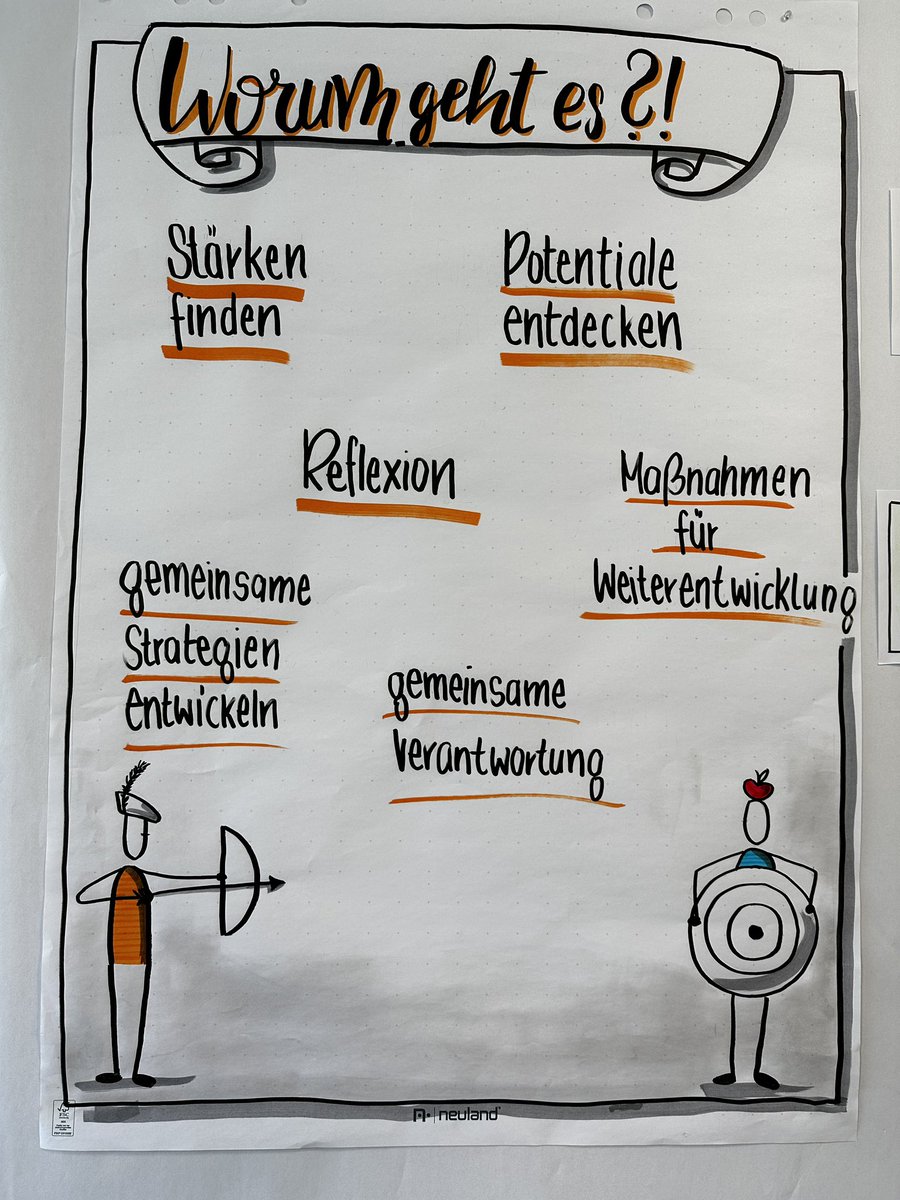 Worum geht es?!
Stärken
finden
Potentiale
entdecken
Reflexion
Maßnahmen
für
Weiterentwicklung
gemeinsame
Strategien
entwickeln
gemeinsame
Verantwortung
neuland
FSC